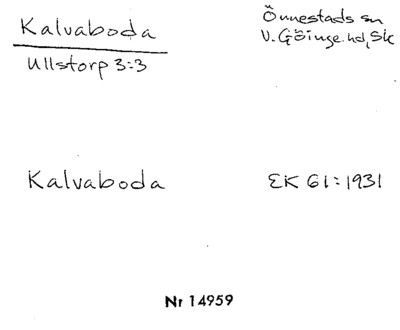 Kalvaboda
Önnestads sn
V. Göinge. hd, Sk
Ullstorp 3:3
Kalvaboda
EK 61:1931
Nr 14959